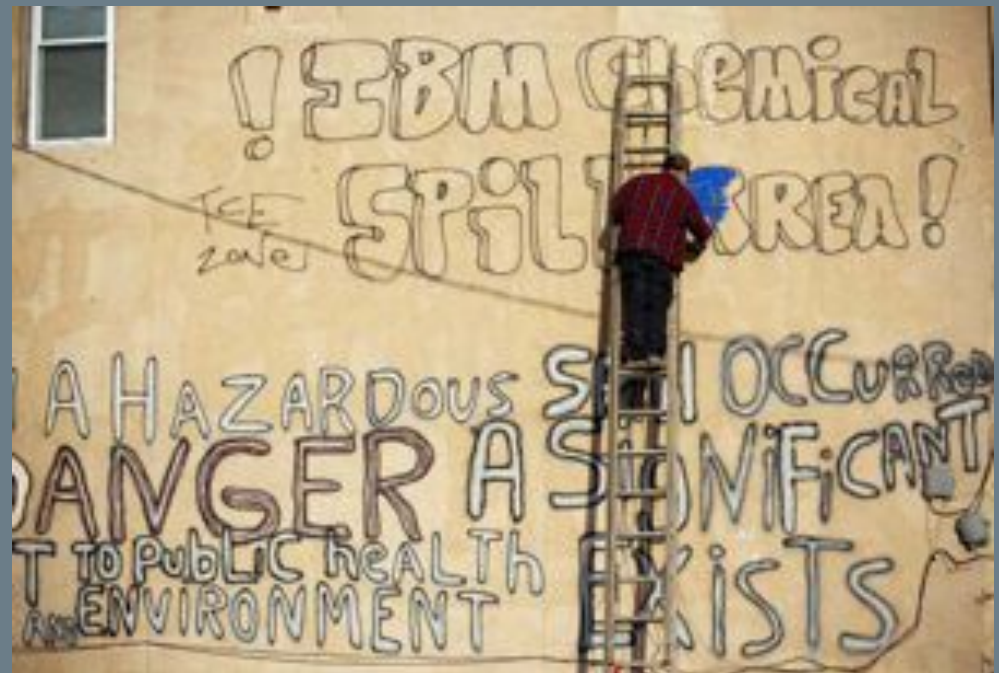 ! IBM Chemical
SPill AREA!
TCE
zone
A HAZARDOUS SPill OCCuRRed
DANGER A SiGNiFiCANT
T TO PubLiC heALTh
AND ENVIRONMENT EXiSTS